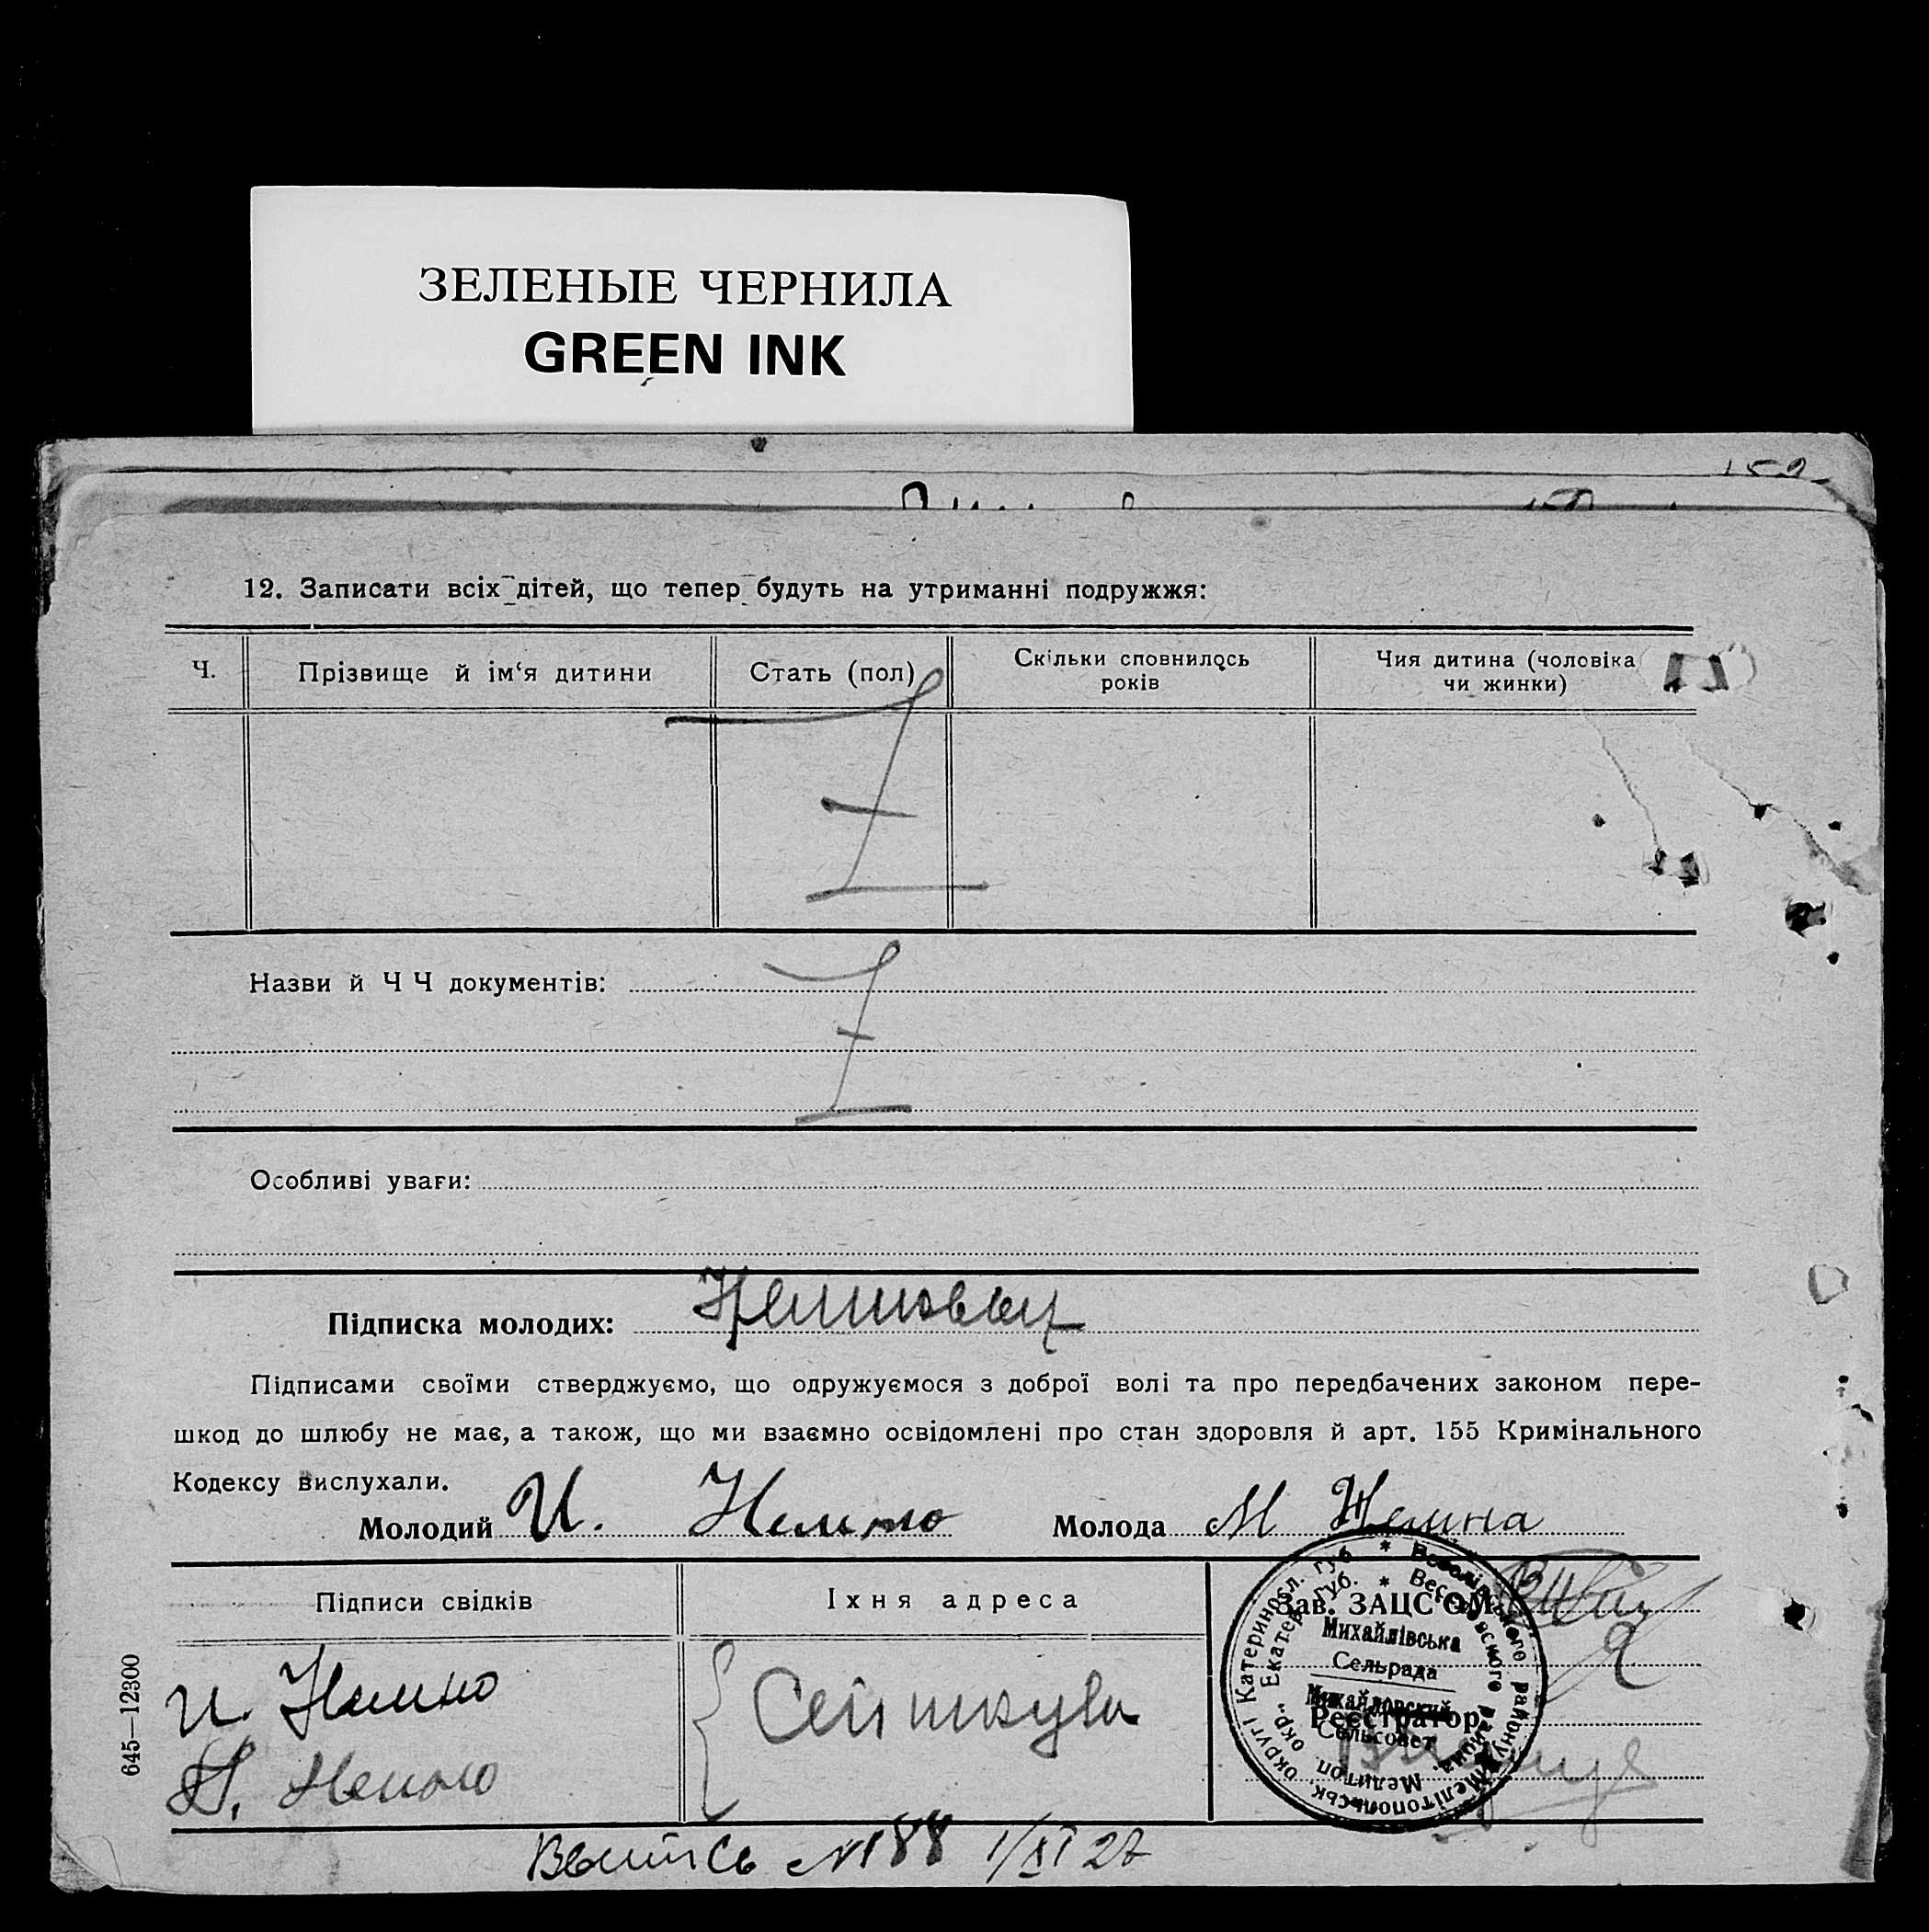 ЗЕЛЕНЫЕ ЧЕРНИЛА
GREEN INK
12. Записати всіх дітей, що тепер будуть на утриманні подружжя:
Ч.
Прізвище й ім‘я дитини
Стать (пол)
Скільки сповнилось
років
Чия дитина (чоловіка
чи жинки)
Назви й Ч Ч документів:
Особливі уваги:
Підписка молодих:
Підписами своїми стверджуємо, що одружуємося з доброї волі та про передбачених законом пере-
шкод до шлюбу не має, а також, що ми взаємно освідомлені про стан здоровля й арт. 155 Кримінального
Кодексу вислухали.
Молодий И.
Молода М
Підписи свідків
Їхня адреса
Зав. ЗАЦС'ОМ
Михайлівська
Сельрада
Михайловский
Сельсовет
Реєстратор
И.
645—12300
Выпись №188 1/XI 27